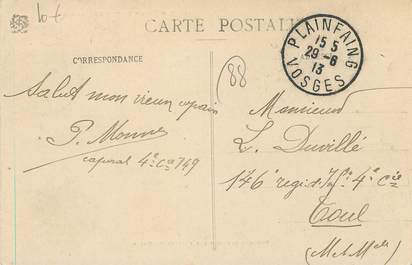 CARTE POSTALE
CORRESPONDANCE
PLAINFAING
15 5
29-6
13
VOSGES
88
Salut mon vieux copain
P.
caporal 4e Cie 149
Monsieur
L. Duvillé
146e regt d'Inf.ie 4e Cie
Toul
(M et Mlle)